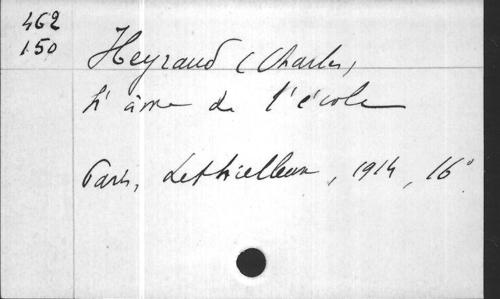 462
150
Heyraud (Charles)
L'âme de l'école
Paris, Lethielleux, 1914, 16°